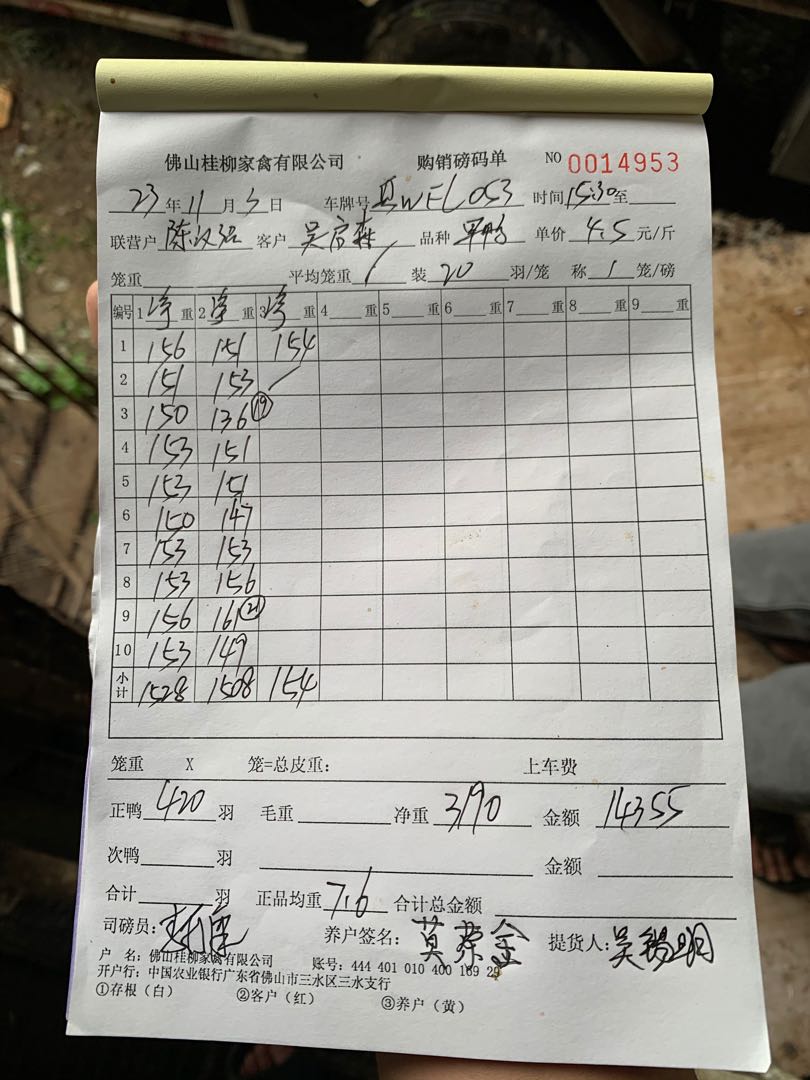 佛山桂柳家禽有限公司 购销磅码单 NO 0014953
23年11月3日 车牌号 WFL053 时间15:30至
联营户 陈汉强 客户 吴启森 品种 单价 4.5 元/斤
笼重 平均笼重 / 装 20 羽/笼 称 1 笼/磅
编号 1 净 重 2 净 重 3 净 重 4 重 5 重 6 重 7 重 8 重 9 重
1 156 151 154
2 151 153 /
3 150 136 ⑲
4 153 151
5 153 151
6 150 147
7 153 153
8 153 156
9 156 161 ㉑
10 153 149
小计 1528 1508 154
笼重 X 笼=总皮重: 上车费
正鸭 420 羽 毛重 净重 3190 金额 14355
次鸭 羽 金额
合计 羽 正品均重 7.6 合计总金额
司磅员: 养户签名: 莫 金 提货人: 吴锡明
户 名: 佛山桂柳家禽有限公司 账号: 444 401 010 400 169 29
开户行: 中国农业银行广东省佛山市三水区三水支行
①存根（白） ②客户（红） ③养户（黄）